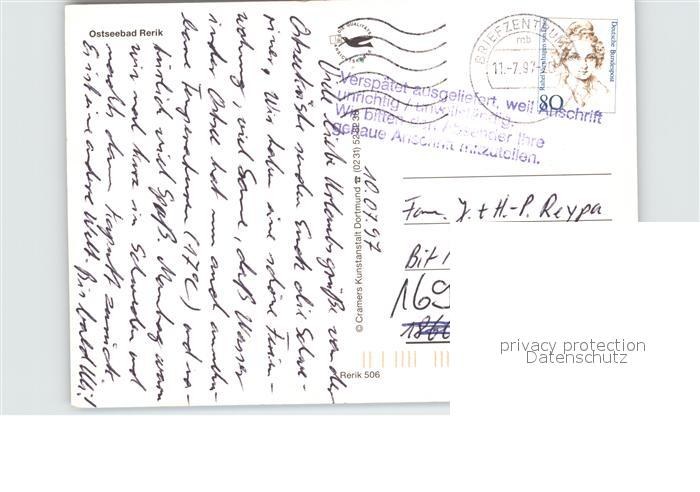 Ostseebad Rerik
Viele liebe Urlaubsgrüße von der
Ostseeküste senden Euch die Schrei-
ner. Wir haben eine schöne Ferien-
wohnung, viel Sonne, das Wasser
in der Ostsee hat nun auch
Temperaturen (17°C) und na-
türlich viel Spaß. Montag waren
wir mal kurz in Schweden und
zurück.
Es ist eine andere Welt. Bis bald Uli!
10.07.97
© Cramers Kunstanstalt Dortmund ☎ (0231)
Rerik 506
BRIEFZENTRUM
mb
11.-7.97
Deutsche Bundespost
80
Verspätet ausgeliefert, weil Anschrift
unrichtig / unvollständig.
Wir bitten den Absender Ihre
genaue Anschrift mitzuteilen.
Fam. J. + H.-P. Reypa
Bit
169
privacy protection
Datenschutz